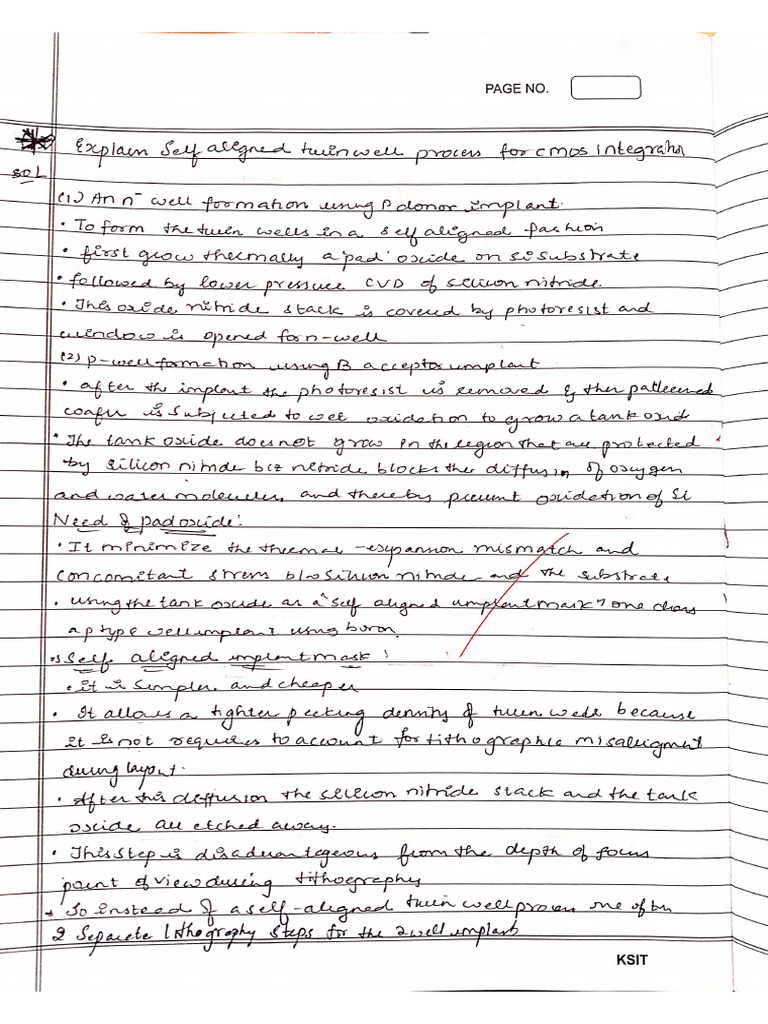 PAGE NO.
Explain Self aligned twin well process for cmos integration
sol
(1) An n- well formation using P donor implant.
• To form the twin wells in a self aligned fashion
• first grow thermally a 'pad' oxide on si substrate
• followed by lower pressure CVD of silicon nitride.
• This oxide nitride stack is covered by photoresist and
window is opened for n-well
(2) p-well formation using B acceptor implant
• after the implant the photoresist is removed & then patterened
wafer is subjected to wet oxidation to grow a tank oxide
• The tank oxide does not grow in the region that are protected
by silicon nitride bcz nitride blocks the diffusion of oxygen
and water molecules and thereby prevent oxidation of Si
Need of pad oxide:
• It minimize the thermal -expansion mismatch and
concomitant stress b/w silicon nitride and the substrate
• using the tank oxide as a "self aligned implant mask" one does
a p type well implant using boron
• Self aligned implant mask:
• it is simpler and cheaper
• It allows a tighter packing density of twin well because
it is not requires to account for lithographic misaligment
during layout.
• After this diffusion the silicon nitride stack and the tank
oxide are etched away.
• This step is disadvantageous from the depth of focus
point of view during lithography
• So instead of a self-aligned twin well process one often
2 Separate lithography steps for the 2 well implants
KSIT